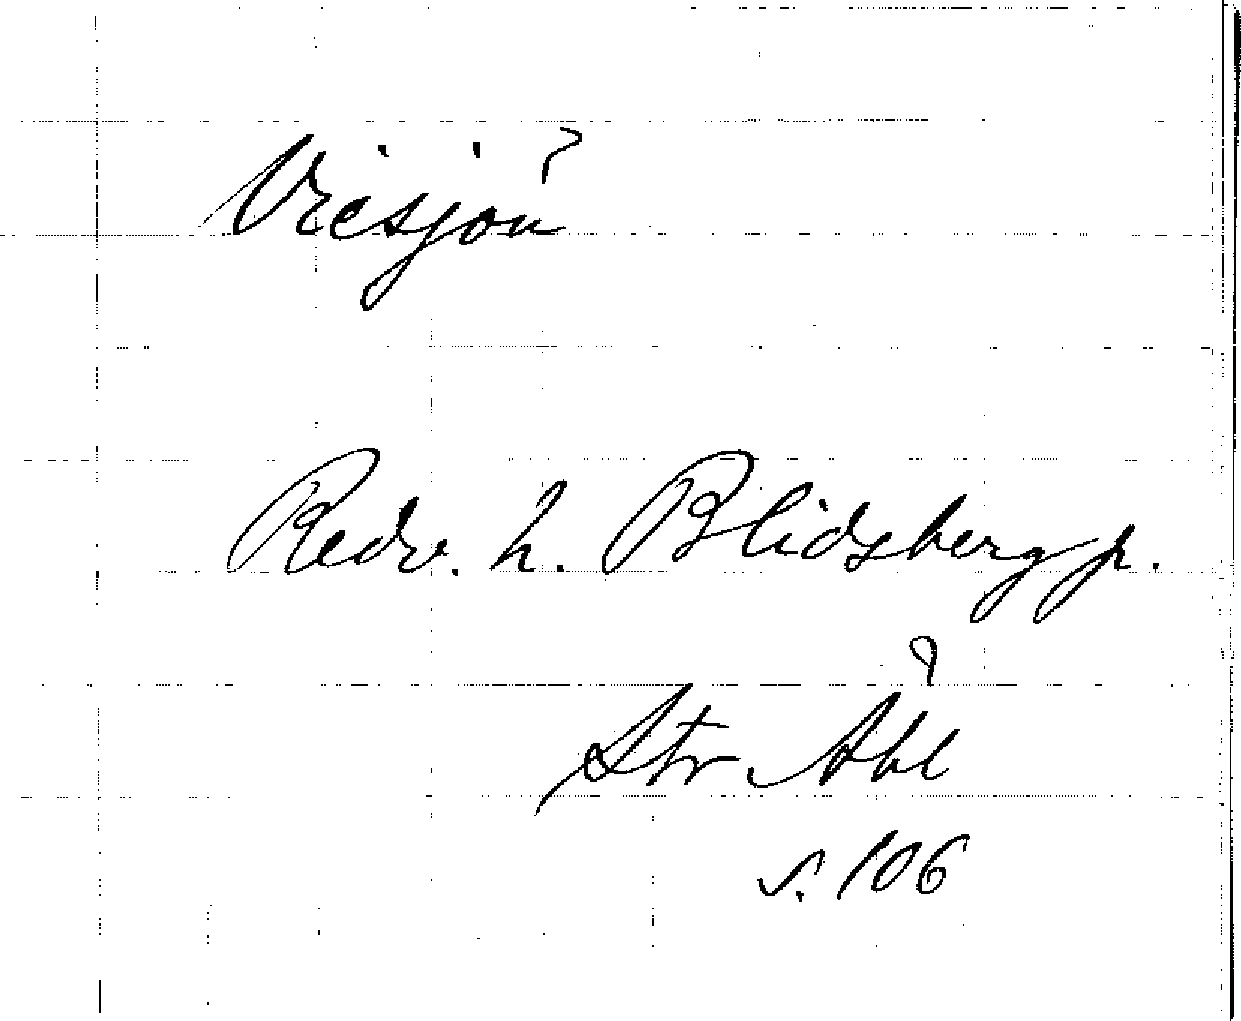 Viesjön
Redv. h. Blidsberg p.
Str Åbl
s. 106